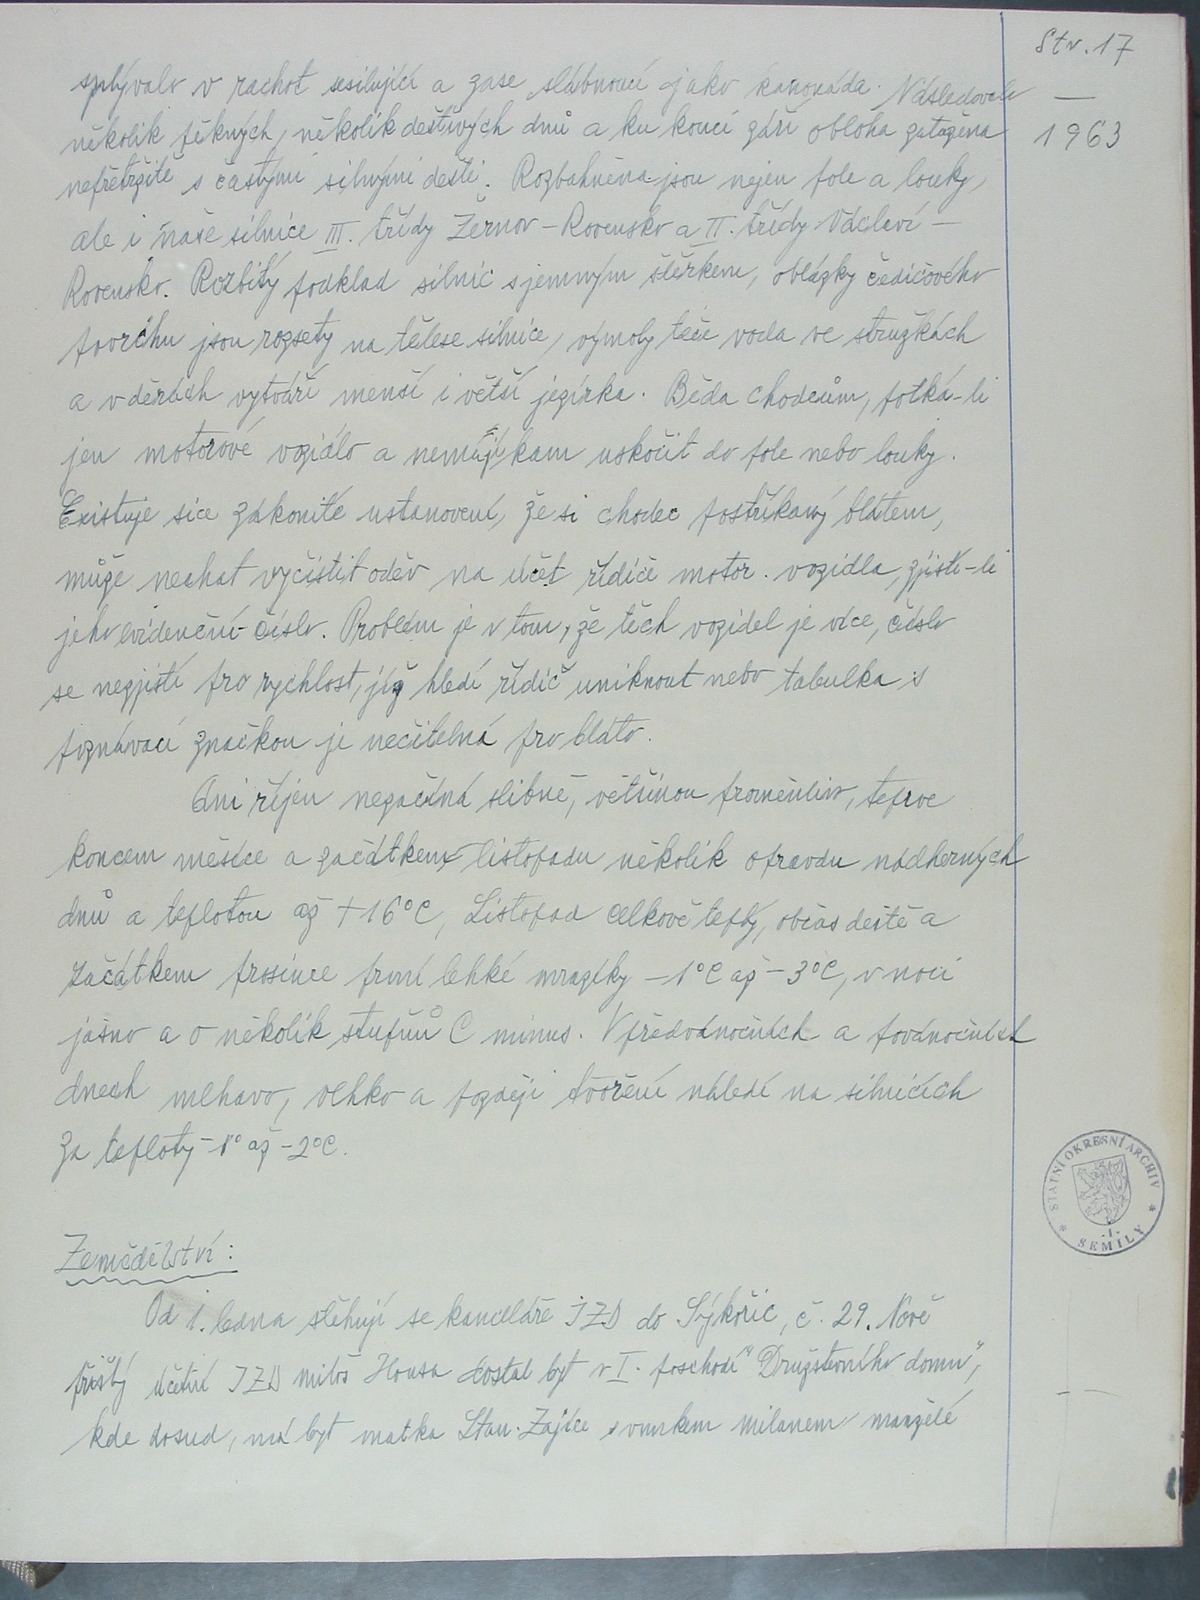 Str. 17
—
1963
splývalo v rachot sesilující a zase slábnoucí jako kanonáda. Následovalo
několik pěkných, několik deštivých dnů a ku konci září obloha zatažena
nefretržitě s častými silnými dešti. Rozbahněna jsou nejen pole a louky,
ale i naše silnice III. třídy Žernov – Rovensko a II. třídy Václaví –
Rovensko. Rozbitý podklad silnic s jemným štěrkem, oblázky čedičového
povrchu jsou rozsety na tělese silnice, výmoly teče voda ve stružkách
a v děrách vytváří menší i větší jezírka. Běda chodcům, potká-li
jen motorové vozidlo a nemají kam uskočit do pole nebo louky.
Existuje sice zákonité ustanovení, že si chodec postříkaný blátem,
může nechat vyčistit oděv na účet řidiče motor. vozidla, zjistí-li
jeho evidenční číslo. Problém je v tom, že těch vozidel je více, číslo
se nezjistí pro rychlost, jíž hledí řidič uniknout nebo tabulka s
poznávací značkou je nečitelná pro bláto.
Ani říjen nezačíná slibně, většinou proměnlivo, teprve
koncem měsíce a začátkem listopadu několik opravdu nádherných
dnů a teplotou až +16°C, Listopad celkově teplý, občas deště a
začátkem prosince první lehké mrazíky –1°C až –3°C, v noci
jasno a o několik stupňů C minus. V předvánočních a povánočních
dnech mlhavo, vlhko a později tvoření náledí na silnicích
za teploty –1° až –2°C.
Zemědělství:
Od 1. ledna stěhují se kanceláře JZD do Sýkořic, č. 29. Nově
přišlý účetní JZD Miloš Housa dostal byt v I. poschodí "Družstevního domu",
kde dosud, má byt matka Stan. Zajíce s vnukem Milanem manželé
STÁTNÍ OKRESNÍ ARCHIV
* SEMILY *
-1-